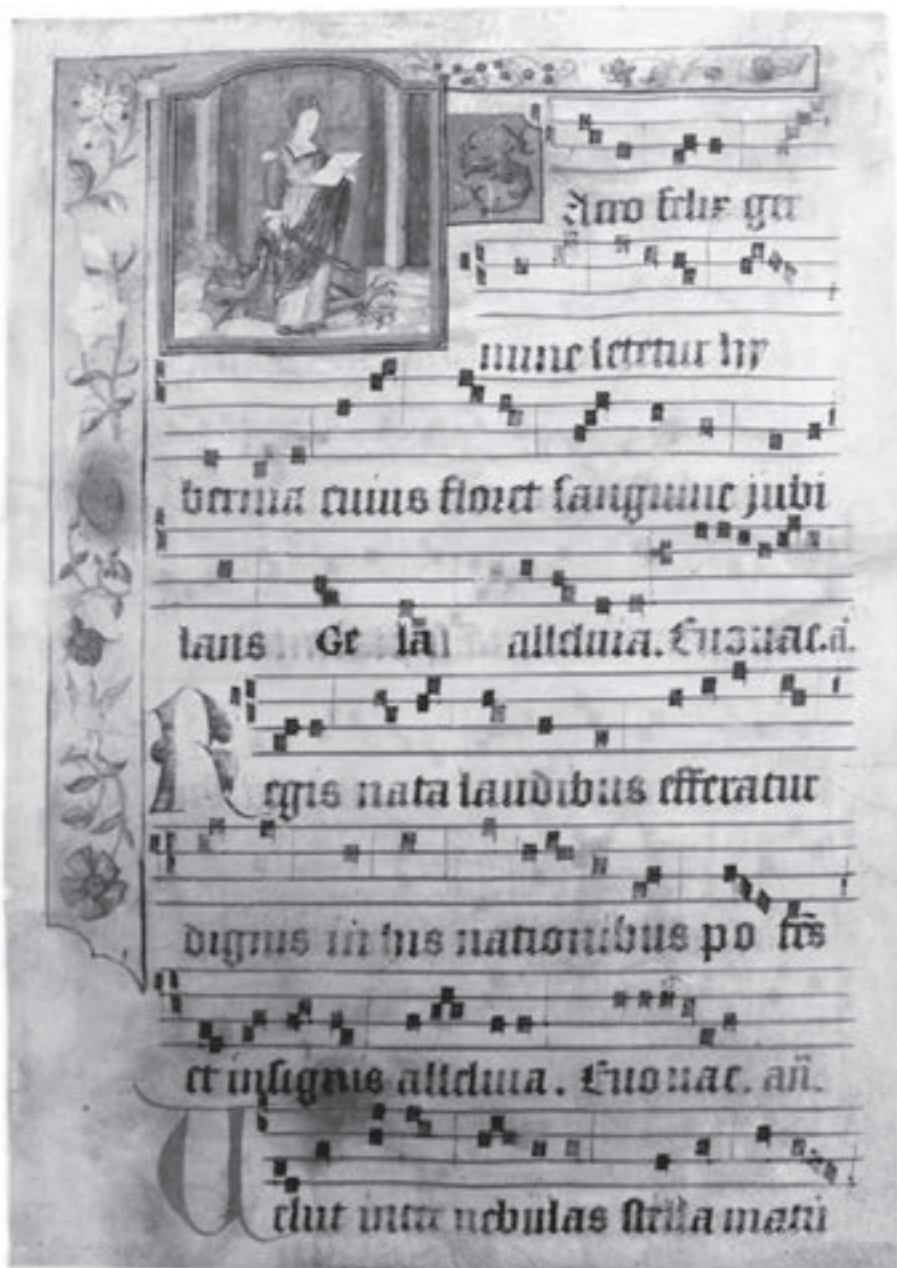 Anno felix ger
mine letetur hy
bernia cuius floret sanguine jubi
lans Ge la alleluia. Euouae. a.
Regis nata laudibus efferatur
dignis in his nationibus po tēs
et insignis alleluia. Euouae. añ.
Uelut inter nebulas stella matu